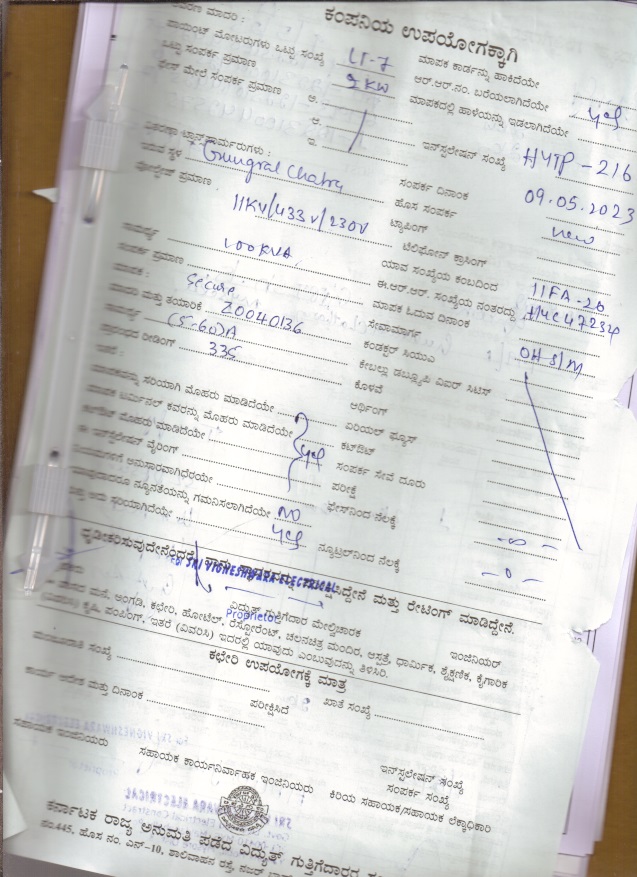 ಕಂಪನಿಯ ಉಪಯೋಗಕ್ಕಾಗಿ
ಮಾದರಿ :
ಪಾಯಿಂಟ್ ಮೋಟರುಗಳು ಒಟ್ಟು ಸಂಖ್ಯೆ LT-7
ಮಾಪಕ ಕಾರ್ಡನ್ನು ಹಾಕಿದೆಯೇ
ಒಟ್ಟು ಸಂಪರ್ಕ ಪ್ರಮಾಣ 2KW
ಆರ್.ಆರ್.ನಂ. ಬರೆಯಲಾಗಿದೆಯೇ
ಫೇಸ್ ಮೇಲೆ ಸಂಪರ್ಕ ಪ್ರಮಾಣ ಅ.
ಮಾಪಕದಲ್ಲಿ ಹಾಳೆಯನ್ನು ಇಡಲಾಗಿದೆಯೇ yes
ಆ.
ಇ.
ಇನ್‌ಸ್ಟಲೇಷನ್ ಸಂಖ್ಯೆ HYTP-216
ವಿತರಣಾ ಟ್ರಾನ್ಸ್‌ಫಾರ್ಮರುಗಳು :
ಇರುವ ಸ್ಥಳ
ಸಂಪರ್ಕ ದಿನಾಂಕ 09.05.2023
ವೋಲ್ಟೇಜ್ ಪ್ರಮಾಣ 11KV/433V/230V
ಹೊಸ ಸಂಪರ್ಕ new
ಟ್ಯಾಪಿಂಗ್
ಟೆಲಿಫೋನ್ ಕ್ರಾಸಿಂಗ್
ಸಾಮರ್ಥ್ಯ 100KVA
ಯಾವ ಸಂಖ್ಯೆಯ ಕಂಬದಿಂದ 11FA-26
ಸಂಪರ್ಕ ಪ್ರಮಾಣ
ಈ.ಆರ್.ಆರ್. ಸಂಖ್ಯೆಯ ನಂತರದ್ದು
ಮಾಪಕ : Secure
ಮಾಪಕ ಓದುವ ದಿನಾಂಕ
ಮಾದರಿ ಮತ್ತು ತಯಾರಿಕೆ 20040136
ಸೇವಾಮಾರ್ಗ OH S/M
ಸಾಮರ್ಥ್ಯ (5-60)A
ಕಂಡಕ್ಟರ್ ಸಿಯುಎ
ಪ್ರಾರಂಭದ ರೀಡಿಂಗ್ 335
ಕೇಬಲ್ಲು ಡಬ್ಲ್ಯೂಪಿ ವಿಎರ್ ಸಿಟಿಸ್
ಇತರೆ :
ಕೊಳವೆ
ಅರ್ಥಿಂಗ್
ಮಾಪಕವನ್ನು ಸರಿಯಾಗಿ ಮೊಹರು ಮಾಡಿದೆಯೇ
ಏರಿಯಲ್ ಫ್ಯೂಸ್
ಮಾಪಕ ಟರ್ಮಿನಲ್ ಕವರನ್ನು ಮೊಹರು ಮಾಡಿದೆಯೇ
ಕಟ್‌ಔಟ್
ಕಟ್‌ಔಟ್ ಮೊಹರು ಮಾಡಿದೆಯೇ yes
ಸಂಪರ್ಕ ಸೇವೆ ದೂರು
ಈ ಇನ್‌ಸ್ಟಲೇಷನ್ ವೈರಿಂಗ್
ಪರೀಕ್ಷೆ
ನಿಯಮಗಳಿಗೆ ಅನುಸಾರವಾಗಿಧೆರೆಯೇ
ಫೇಸ್‌ನಿಂದ ನೆಲಕ್ಕೆ
ಯಾವುದಾದರೂ ನ್ಯೂನತೆಯನ್ನು ಗಮನಿಸಲಾಗಿದೆಯೇ NO
ಅದು ಸರಿಯಾಗಿದೆಯೇ yes
ನ್ಯೂಟ್ರಲ್‌ನಿಂದ ನೆಲಕ್ಕೆ
ದೃಡೀಕರಿಸುವುದೇನೆಂದರೆ, ಮತ್ತು ರೇಟಿಂಗ್ ಮಾಡಿದ್ದೇನೆ.
For SRI VIGNESHWARA ELECTRICAL
Proprietor
ವಿದ್ಯುತ್ ಗುತ್ತಿಗೆದಾರ ಮೇಲ್ವಿಚಾರಕ
ಇಂಜಿನಿಯರ್
ಮನೆ, ಅಂಗಡಿ, ಕಛೇರಿ, ಹೋಟೆಲ್, ರೆಸ್ಟೋರೆಂಟ್, ಚಲನಚಿತ್ರ ಮಂದಿರ, ಆಸ್ಪತ್ರೆ, ಧಾರ್ಮಿಕ, ಶೈಕ್ಷಣಿಕ, ಕೈಗಾರಿಕ
(ವಿವರಿಸಿ) ಕೃಷಿ, ಪಂಪಿಂಗ್, ಇತರೆ (ವಿವರಿಸಿ) ಇದರಲ್ಲಿ ಯಾವುದು ಎಂಬುವುದನ್ನು ತಿಳಿಸಿರಿ.
ಕಛೇರಿ ಉಪಯೋಗಕ್ಕೆ ಮಾತ್ರ
ಸಂಖ್ಯೆ
ಖಾತೆ ಸಂಖ್ಯೆ
ಕಾರ್ಯ ಆದೇಶ ಮತ್ತು ದಿನಾಂಕ
ಪರೀಕ್ಷಿಸಿದೆ
ಇನ್‌ಸ್ಟಲೇಷನ್ ಸಂಖ್ಯೆ
ಸಂಪರ್ಕ ಸಂಖ್ಯೆ
ಸಹಾಯಕ ಇಂಜಿನಿಯರು
ಸಹಾಯಕ ಕಾರ್ಯನಿರ್ವಾಹಕ ಇಂಜಿನಿಯರು
ಕಿರಿಯ ಸಹಾಯಕ/ಸಹಾಯಕ ಲೆಕ್ಕಾಧಿಕಾರಿ
ಕರ್ನಾಟಕ ರಾಜ್ಯ ಅನುಮತಿ ಪಡೆದ ವಿದ್ಯುತ್ ಗುತ್ತಿಗೆದಾರರ
ನಂ.445, ಹೊಸ ನಂ. ಎನ್-10, ಶಾಲಿವಾಹನ ರಸ್ತೆ, ನಜರ್